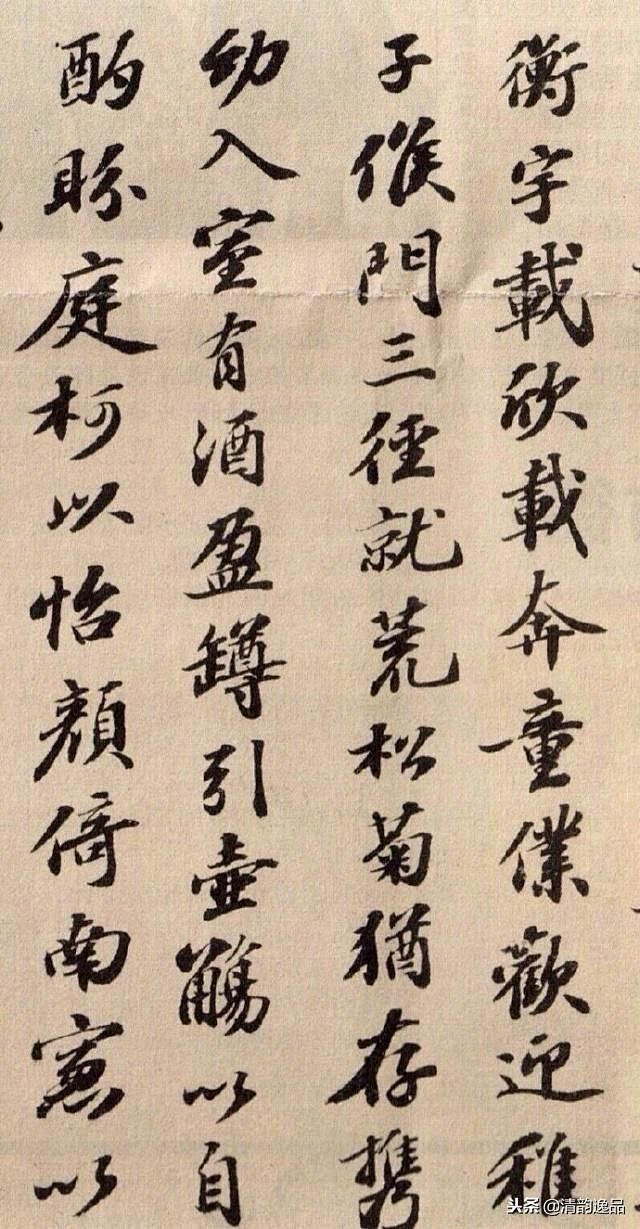 衡宇載欣載奔童僕歡迎稚
子候門三徑就荒松菊猶存携
幼入室有酒盈罇引壺觴以自
酌眄庭柯以怡顏倚南窓以
头条@清韵逸品